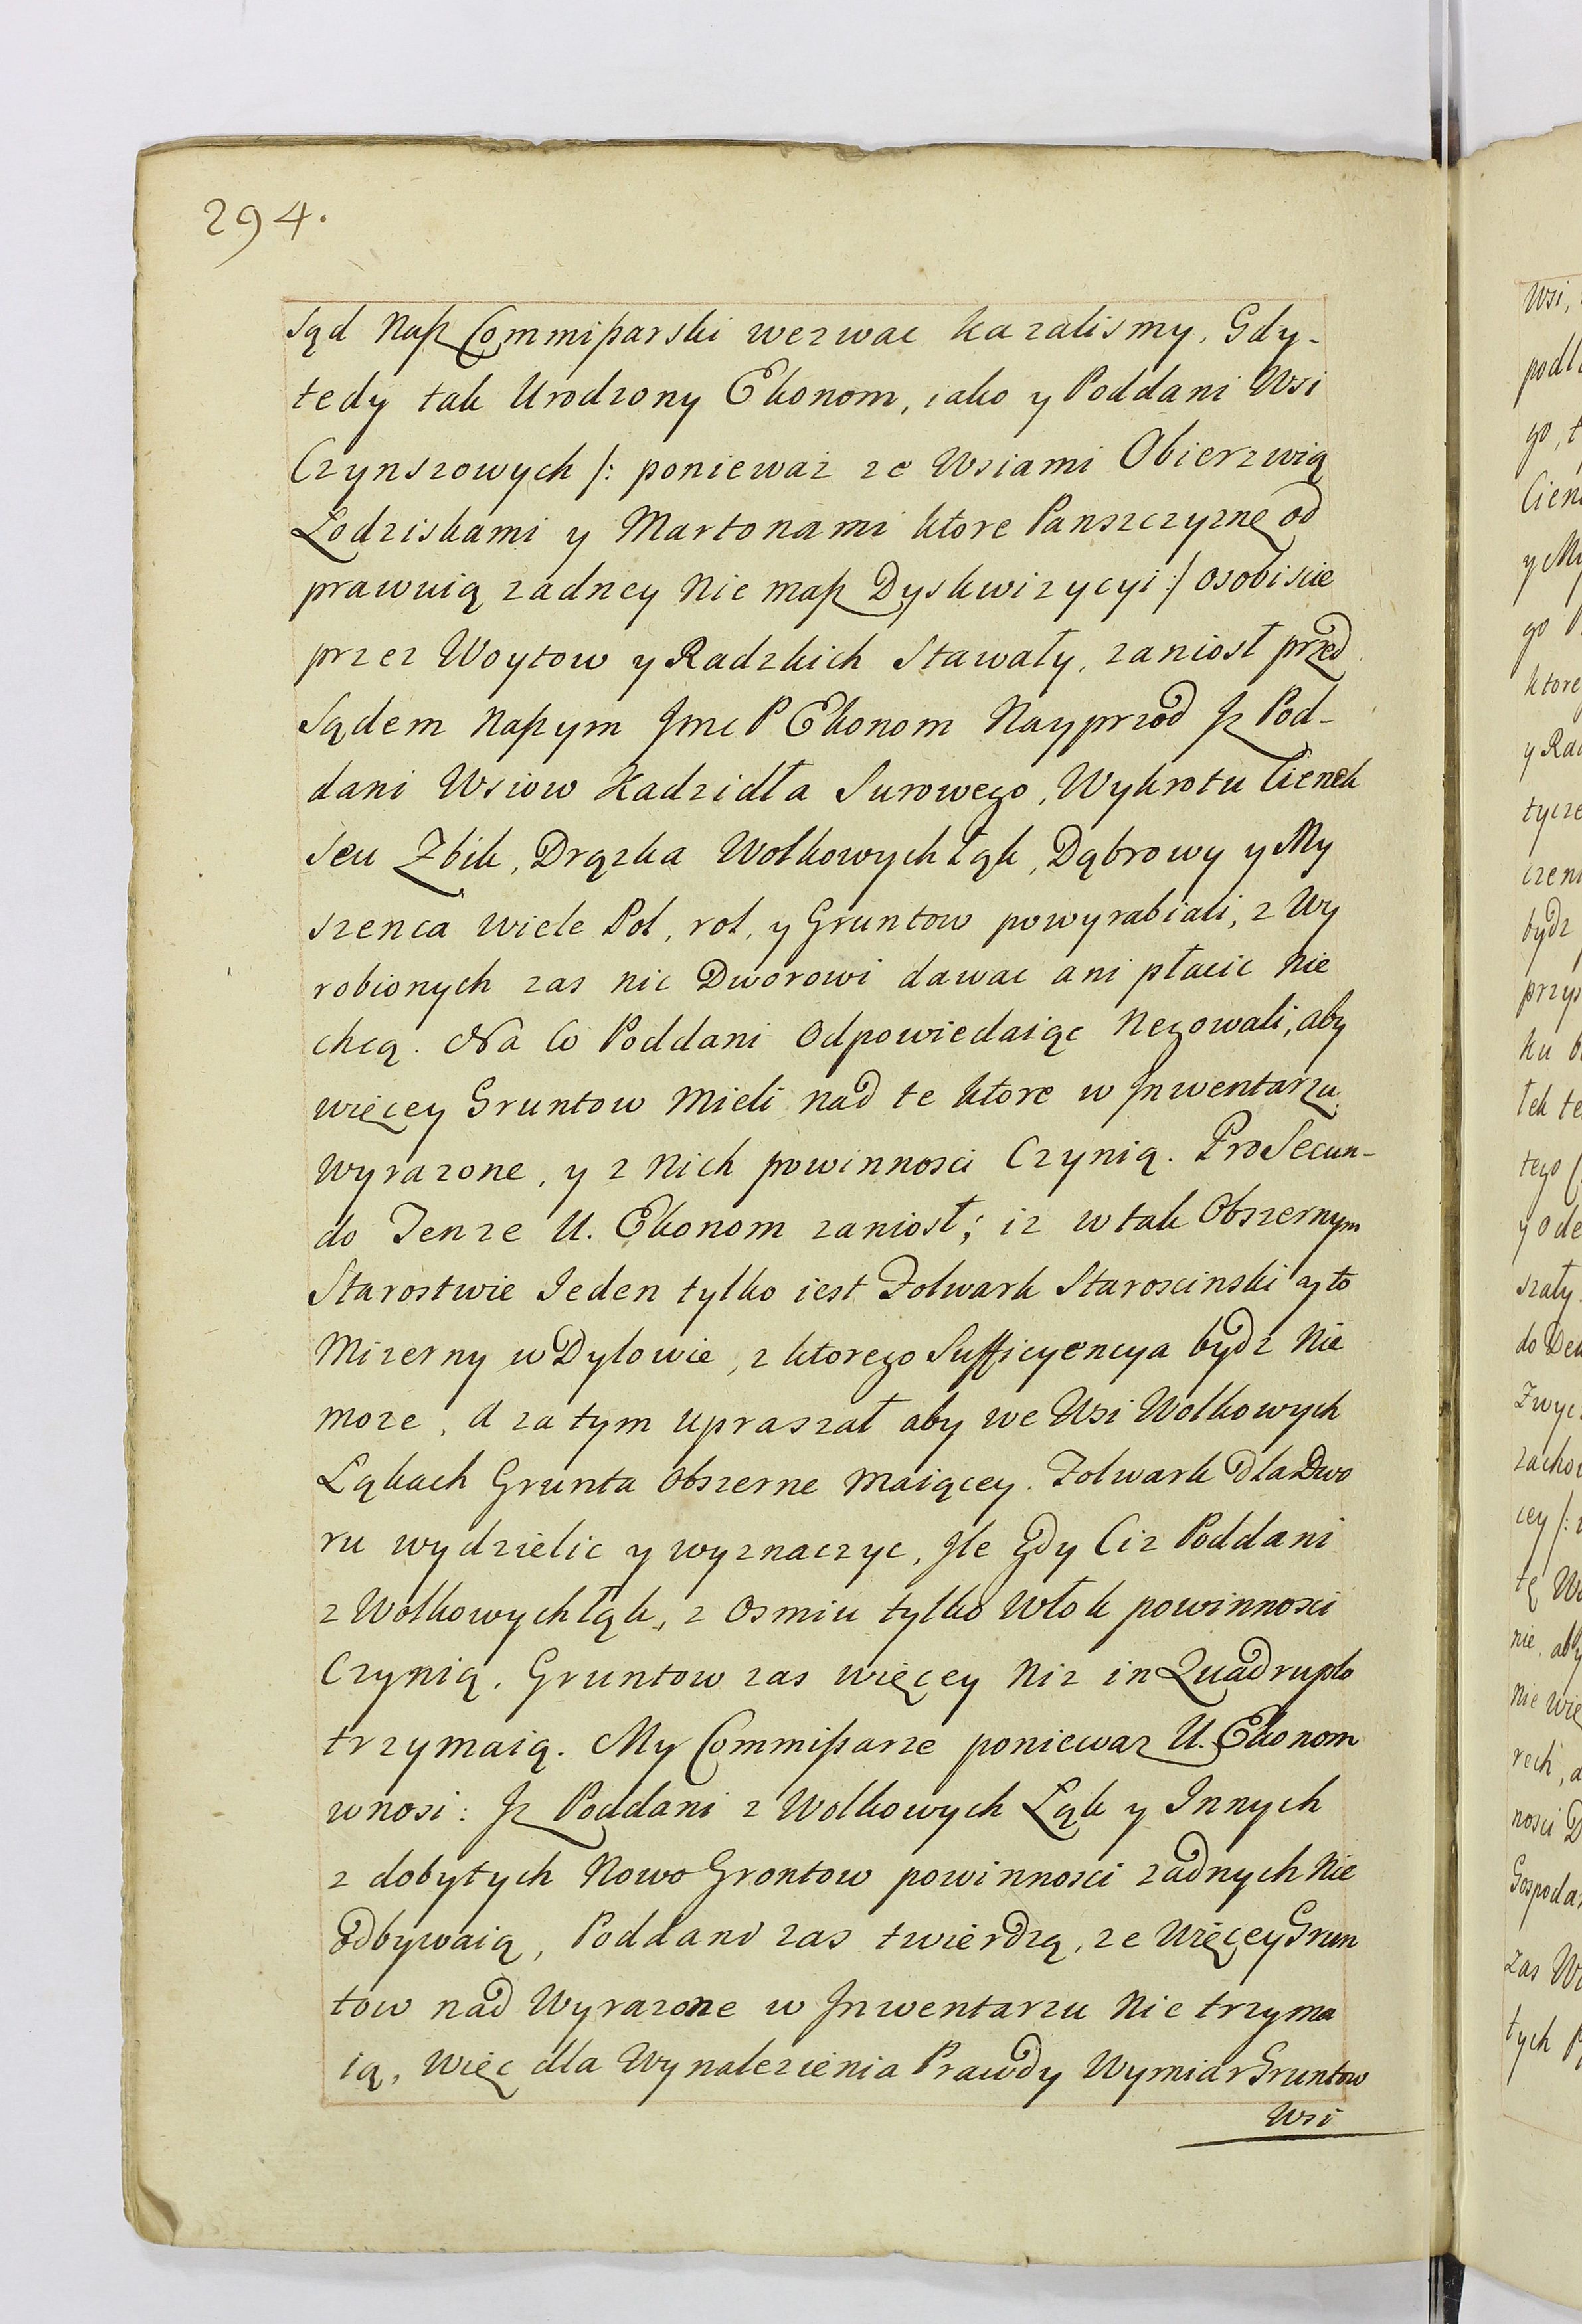 294.
Sąd Nasz Commissarski wezwac kazalismy. Gdy-
tedy tak Urodzony Ekonom, iako y Poddani Wsi
Czynszowych /: ponieważ ze Wsiami Obierzwią
Łodziskami y Martonami ktore Panszczyznę od
prawuią zadney Nie masz Dyskwizycyi :/ osobiscie
przez Woytow y Radzkich Stawały, zaniosł przed
Sądem Naszym Jmc P Ekonom Nayprzod Jz Pod-
dani Wsiow Kadzidła Surowego, Wykrotu Cienek
seu Zbik, Drązka Wolkowych Łąk, Dąbrowy y My
szenca wiele Pol, rol, y Gruntow powyrabiali, z Wy
robionych zas nic Dworowi dawac ani płacic Nie
chcą. Na Co Poddani Odpowiedaiąc Negowali, aby
więcey Gruntow Mieli nad te ktore w Jnwentarzu
wyrazone, y z Nich powinnosci Czynią. Pro Secun-
do Tenze U. Ekonom zaniosł; iz w tak Obszernym
Starostwie Jeden tylko iest Folwark Staroscinski y to
Mizerny w Dylowie, z ktorego Sufficyencya bydz Nie
moze, A za tym upraszał aby we Wsi Wolkowych
Łąkach Grunta Obszerne Maiącey. Folwark Dla Dwo
ru wydzielic y wyznaczyc, Jle gdy Ciz Poddani
z Wolkowych Łąk, z Osmiu tylko Włok powinnosci
Czynią. Gruntow zas więcey Niz in Quadruplo
trzymaią. My Commissarze poniewaz U. Ekonom
wnosi: Jz Poddani z Wolkowych Łąk y Innych
z dobytych Nowo Grontow powinnosci zadnych Nie
odbywaią, Poddani zas twierdzą, ze Więcey Grun
tow nad Wyrazone w Jnwentarzu Nie trzyma
ią, Więc dla Wynalezienia Prawdy Wymiar Gruntow
Wsi